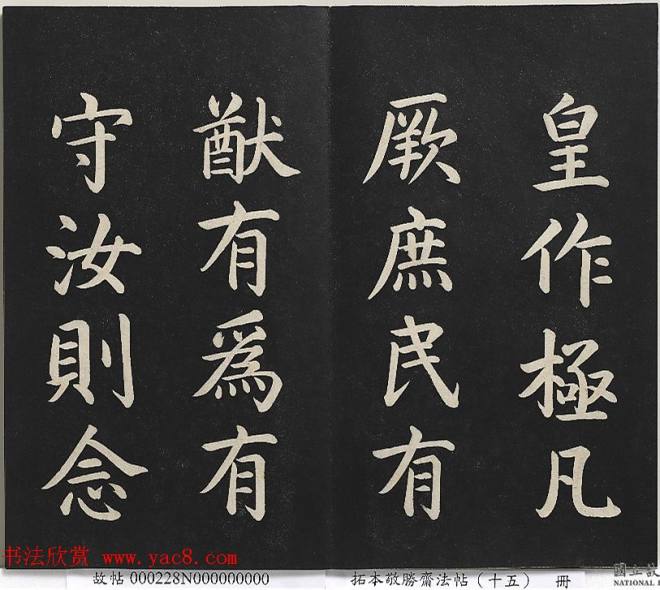 皇作極凡
厥庶民有
猷有為有
守汝則念
书法欣赏 www.yac8.com
故帖 000228N000000000
拓本敬勝齋法帖（十五） 冊
國立故
NATIONAL